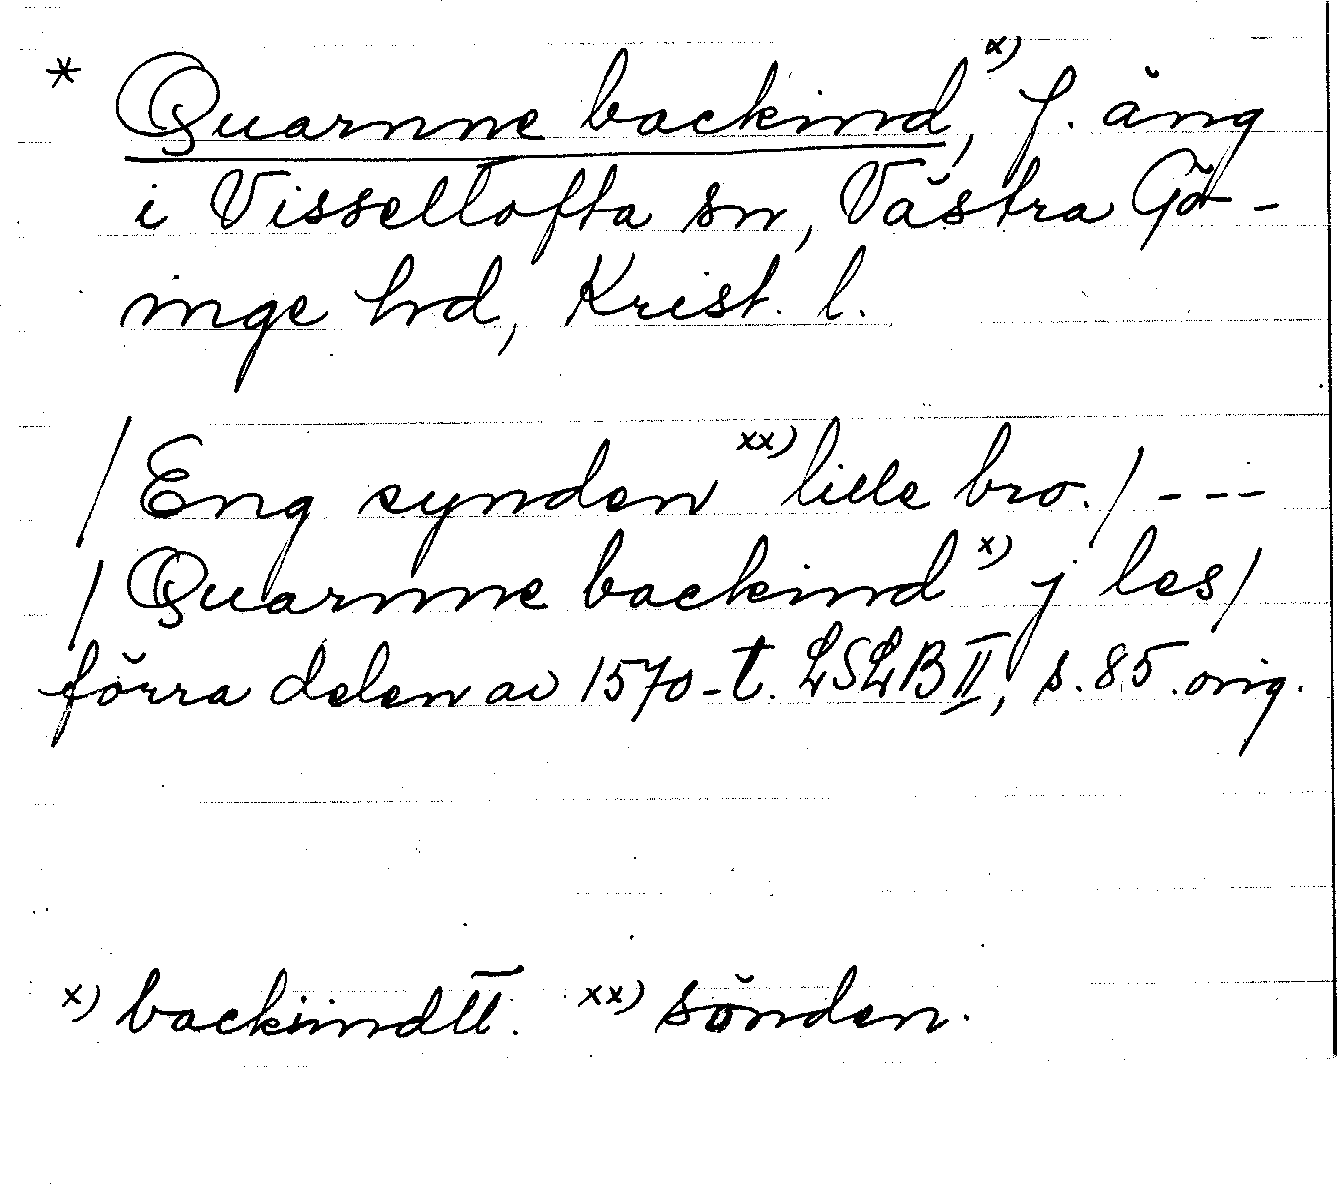 * Quarnne backind, x) f. äng
i Visseltofta sn, Västra Gö-
inge hd, Krist. l.
/ Eng synden xx) lille bro. / ---
/ Quarnne backind x) j les/
förra delen av 1570-t. LSLB II, s. 85. orig.
x) backiindtt. xx) sönden.